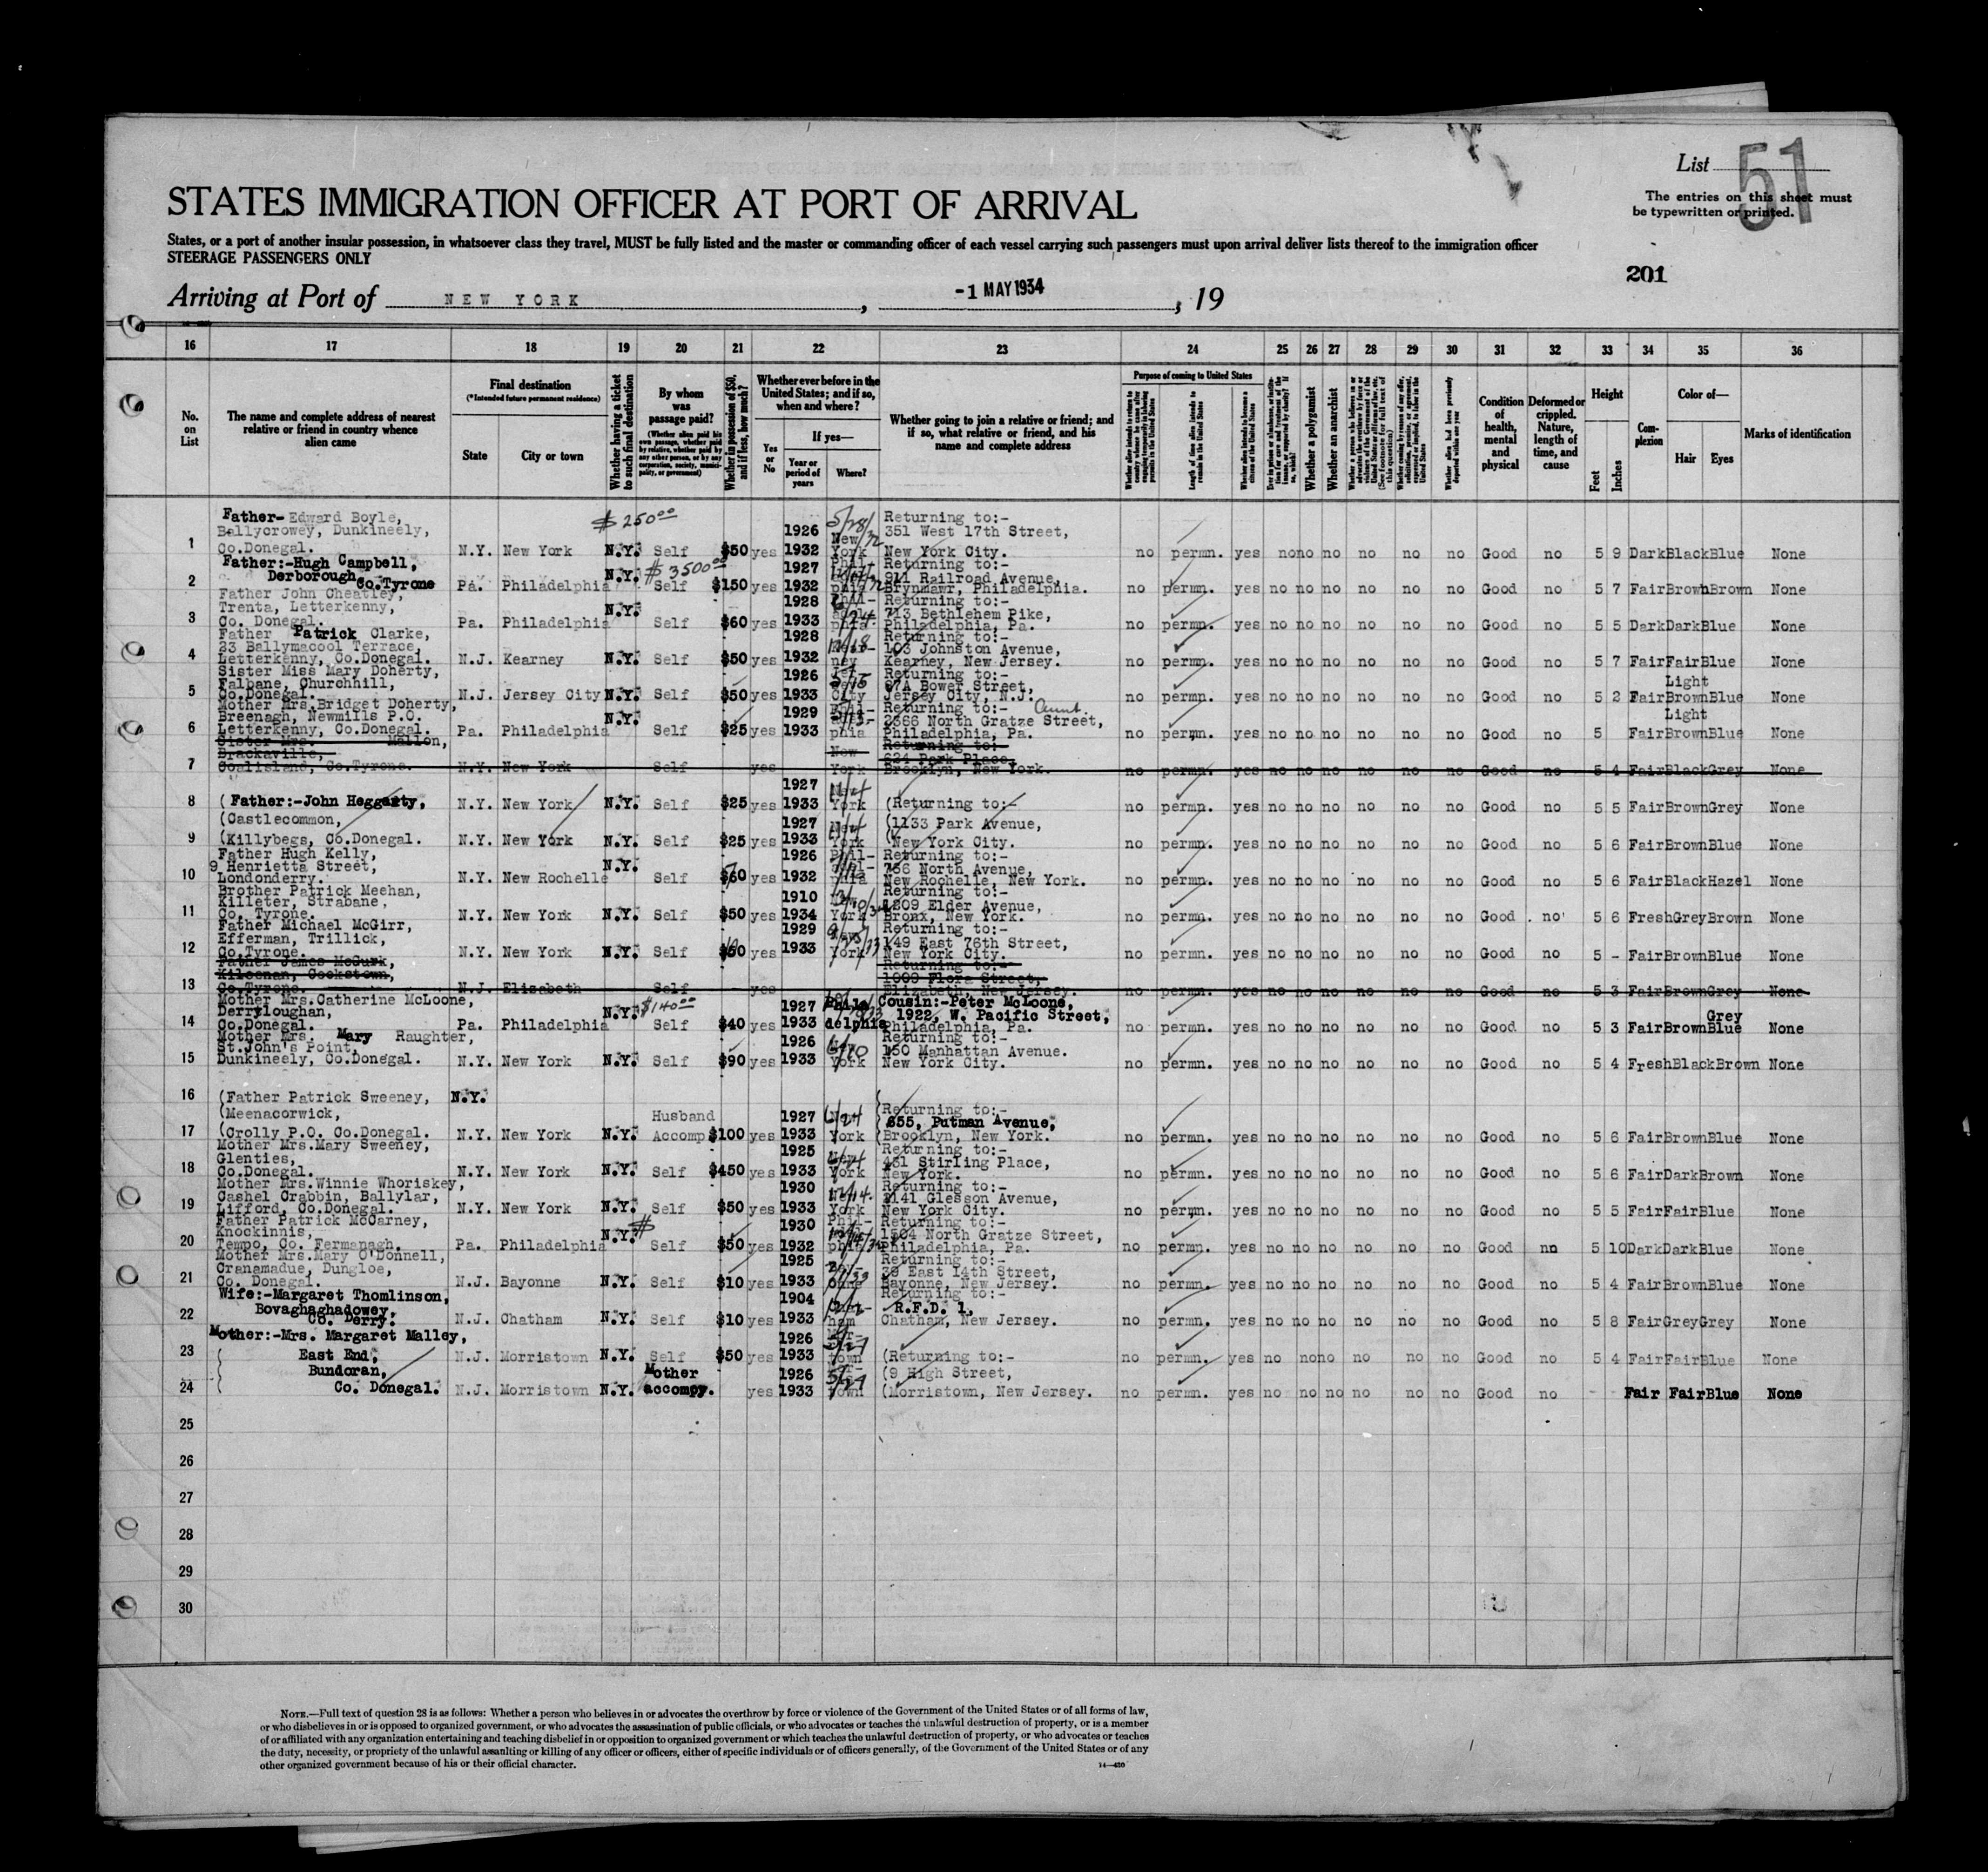 List 51
The entries on this sheet must
be typewritten or printed.
STATES IMMIGRATION OFFICER AT PORT OF ARRIVAL
States, or a port of another insular possession, in whatsoever class they travel, MUST be fully listed and the master or commanding officer of each vessel carrying such passengers must upon arrival deliver lists thereof to the immigration officer
STEERAGE PASSENGERS ONLY
201
Arriving at Port of NEW YORK, -1 MAY 1934, 19
16 17 18 19 20 21 22 23 24 25 26 27 28 29 30 31 32 33 34 35 36
No. on List
The name and complete address of nearest relative or friend in country whence alien came
Final destination
(*Intended future permanent residence)
State
City or town
Whether having a ticket to such final destination
By whom was passage paid?
(Whether alien paid his own passage, whether paid by relative, whether paid by any other person, or by any corporation, society, municipality, or government)
Whether in possession of $50, and if less, how much?
Whether ever before in the United States; and if so, when and where?
Yes or No
If yes—
Year or period of years
Where?
Whether going to join a relative or friend; and if so, what relative or friend, and his name and complete address
Purpose of coming to United States
Length of time alien intends to remain in the United States
Whether alien intends to become a citizen of the United States
Whether a polygamist
Whether an anarchist
Condition of health, mental and physical
Deformed or crippled. Nature, length of time, and cause
Height
Feet
Inches
Complexion
Color of—
Hair
Eyes
Marks of identification
1 Father-Edward Boyle, Ballycrowey, Dunkineely, Co.Donegal. N.Y. New York N.Y. $250.00 Self $50 yes 1926 1932 5/28/32 New York Returning to:- 351 West 17th Street, New York City. no permn. yes no no no no no no Good no 5 9 Dark Black Blue None
2 Father:-Hugh Campbell, Derborough, Co.Tyrone Pa. Philadelphia N.Y. $3500.00 Self $150 yes 1927 1932 Returning to:- 911 Railroad Avenue, Brynmawr, Philadelphia. no permn. yes no no no no no no Good no 5 7 Fair Brown Brown None
3 Father John Cheatley, Trenta, Letterkenny, Co. Donegal. Pa. Philadelphia N.Y. Self $60 yes 1928 1933 Returning to:- 713 Bethlehem Pike, Philadelphia, Pa. no permn. yes no no no no no no Good no 5 5 Dark Dark Blue None
4 Father Patrick Clarke, 23 Ballymacool Terrace, Letterkenny, Co.Donegal. N.J. Kearney N.Y. Self $50 yes 1928 1932 Returning to:- 103 Johnston Avenue, Kearney, New Jersey. no permn. yes no no no no no no Good no 5 7 Fair Fair Blue None
5 Sister Miss Mary Doherty, Falbane, Churchhill, Co.Donegal. N.J. Jersey City N.Y. Self $50 yes 1926 1933 City Returning to:- 67A Bower Street, Jersey City, N.J. no permn. yes no no no no no no Good no 5 2 Fair Light Brown Blue None
6 Mother Mrs.Bridget Doherty, Breenagh, Newmills P.O. Letterkenny, Co.Donegal. Pa. Philadelphia N.Y. Self $25 yes 1929 1933 Returning to:- Aunt. 2366 North Gratze Street, Philadelphia, Pa. no permn. yes no no no no no no Good no 5 Fair Light Brown Blue None
7 Sister Mrs. Mallon, Brackaville, Coalisland, Co.Tyrone. N.Y. New York Self yes New York Returning to:- 624 Park Place, Brooklyn, New York. no permn. yes no no no no no no Good no 5 4 Fair Black Grey None
8 (Father:-John Heggarty, N.Y. New York N.Y. Self $25 yes 1927 1933 York (Returning to:- no permn. yes no no no no no no Good no 5 5 Fair Brown Grey None
(Castlecommon, (1133 Park Avenue,
9 (Killybegs, Co.Donegal. N.Y. New York N.Y. Self $25 yes 1927 1933 York (New York City. no permn. yes no no no no no no Good no 5 6 Fair Brown Blue None
10 Father Hugh Kelly, 9 Henrietta Street, Londonderry. N.Y. New Rochelle N.Y. Self $60 yes 1926 1932 Returning to:- 756 North Avenue, New Rochelle, New York. no permn. yes no no no no no no Good no 5 6 Fair Black Hazel None
11 Brother Patrick Meehan, Killeter, Strabane, Co. Tyrone. N.Y. New York N.Y. Self $50 yes 1910 1934 York Returning to:- 1309 Elder Avenue, Bronx, New York. no permn. yes no no no no no no Good no 5 6 Fresh Grey Brown None
12 Father Michael McGirr, Efferman, Trillick, Co.Tyrone. N.Y. New York N.Y. Self yes 1929 1933 York Returning to:- 149 East 76th Street, New York City. no permn. yes no no no no no no Good no 5 - Fair Brown Blue None
13 Father James McGurk, Kileenan, Cookstown, Co.Tyrone. N.J. Elizabeth Self yes Returning to:- 1009 Flora Street, Elizabeth, New Jersey. no permn. yes no no no no no no Good no 5 3 Fair Brown Grey None
14 Mother Mrs.Catherine McLoone, Derryloughan, Co.Donegal. Pa. Philadelphia N.Y. $140.00 Self $40 yes 1927 1933 Philadelphia Cousin:-Peter McLoone, 1922, W. Pacific Street, Philadelphia, Pa. no permn. yes no no no no no no Good no 5 3 Fair Brown Grey Blue None
15 Mother Mrs. Mary Raughter, St.John's Point, Dunkineely, Co.Donegal. N.Y. New York N.Y. Self $90 yes 1926 1933 York Returning to:- 150 Manhattan Avenue. New York City. no permn. yes no no no no no no Good no 5 4 Fresh Black Brown None
16 (Father Patrick Sweeney, N.Y.
(Meenacorwick, (Returning to:-
17 (Crolly P.O. Co.Donegal. N.Y. New York N.Y. Husband Accomp $100 yes 1927 1933 6/24 York 855, Putman Avenue, (Brooklyn, New York. no permn. yes no no no no no no Good no 5 6 Fair Brown Blue None
18 Mother Mrs.Mary Sweeney, Glenties, Co.Donegal. N.Y. New York N.Y. Self $450 yes 1925 1933 York Returning to:- 461 Stirling Place, New York. no permn. yes no no no no no no Good no 5 6 Fair Dark Brown None
19 Mother Mrs.Winnie Whoriskey, Cashel Crabbin, Ballylar, Lifford, Co.Donegal. N.Y. New York N.Y. Self $50 yes 1930 1933 York Returning to:- 2141 Glesson Avenue, New York City. no permn. yes no no no no no no Good no 5 5 Fair Fair Blue None
20 Father Patrick McCarney, Knockinnis, Tempo, Co. Fermanagh. Pa. Philadelphia N.Y. $ Self $50 yes 1930 1932 Returning to:- 1504 North Gratze Street, Philadelphia, Pa. no permn. yes no no no no no no Good no 5 10 Dark Dark Blue None
21 Mother Mrs.Mary O'Donnell, Cranamadue, Dungloe, Co. Donegal. N.J. Bayonne N.Y. Self $10 yes 1925 1933 Returning to:- 39 East 14th Street, Bayonne, New Jersey. no permn. yes no no no no no no Good no 5 4 Fair Brown Blue None
22 Wife:-Margaret Thomlinson, Bovaghaghadowey, Co. Derry. N.J. Chatham N.Y. Self $10 yes 1904 1933 Returning to:- R.F.D. 1, Chatham, New Jersey. no permn. yes no no no no no no Good no 5 8 Fair Grey Grey None
Mother:-Mrs. Margaret Malley,
23 East End, N.J. Morristown N.Y. Self $50 yes 1926 1933 town (Returning to:- no permn. yes no no no no no no Good no 5 4 Fair Fair Blue None
Bundoran, (9 High Street,
24 Co. Donegal. N.J. Morristown N.Y. Mother accompy. yes 1926 1933 town (Morristown, New Jersey. no permn. yes no no no no no no Good no Fair Fair Blue None
25
26
27
28
29
30
NOTE.—Full text of question 28 is as follows: Whether a person who believes in or advocates the overthrow by force or violence of the Government of the United States or of all forms of law,
or who disbelieves in or is opposed to organized government, or who advocates the assassination of public officials, or who advocates or teaches the unlawful destruction of property, or is a member
of or affiliated with any organization entertaining and teaching disbelief in or opposition to organized government or which teaches the unlawful destruction of property, or who advocates or teaches
the duty, necessity, or propriety of the unlawful assaulting or killing of any officer or officers, either of specific individuals or of officers generally, of the Government of the United States or of any
other organized government because of his or their official character.
14—430